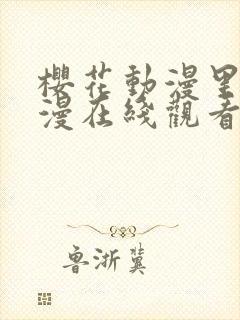 櫻花動漫里
漫在綫觀看
魯浙冀